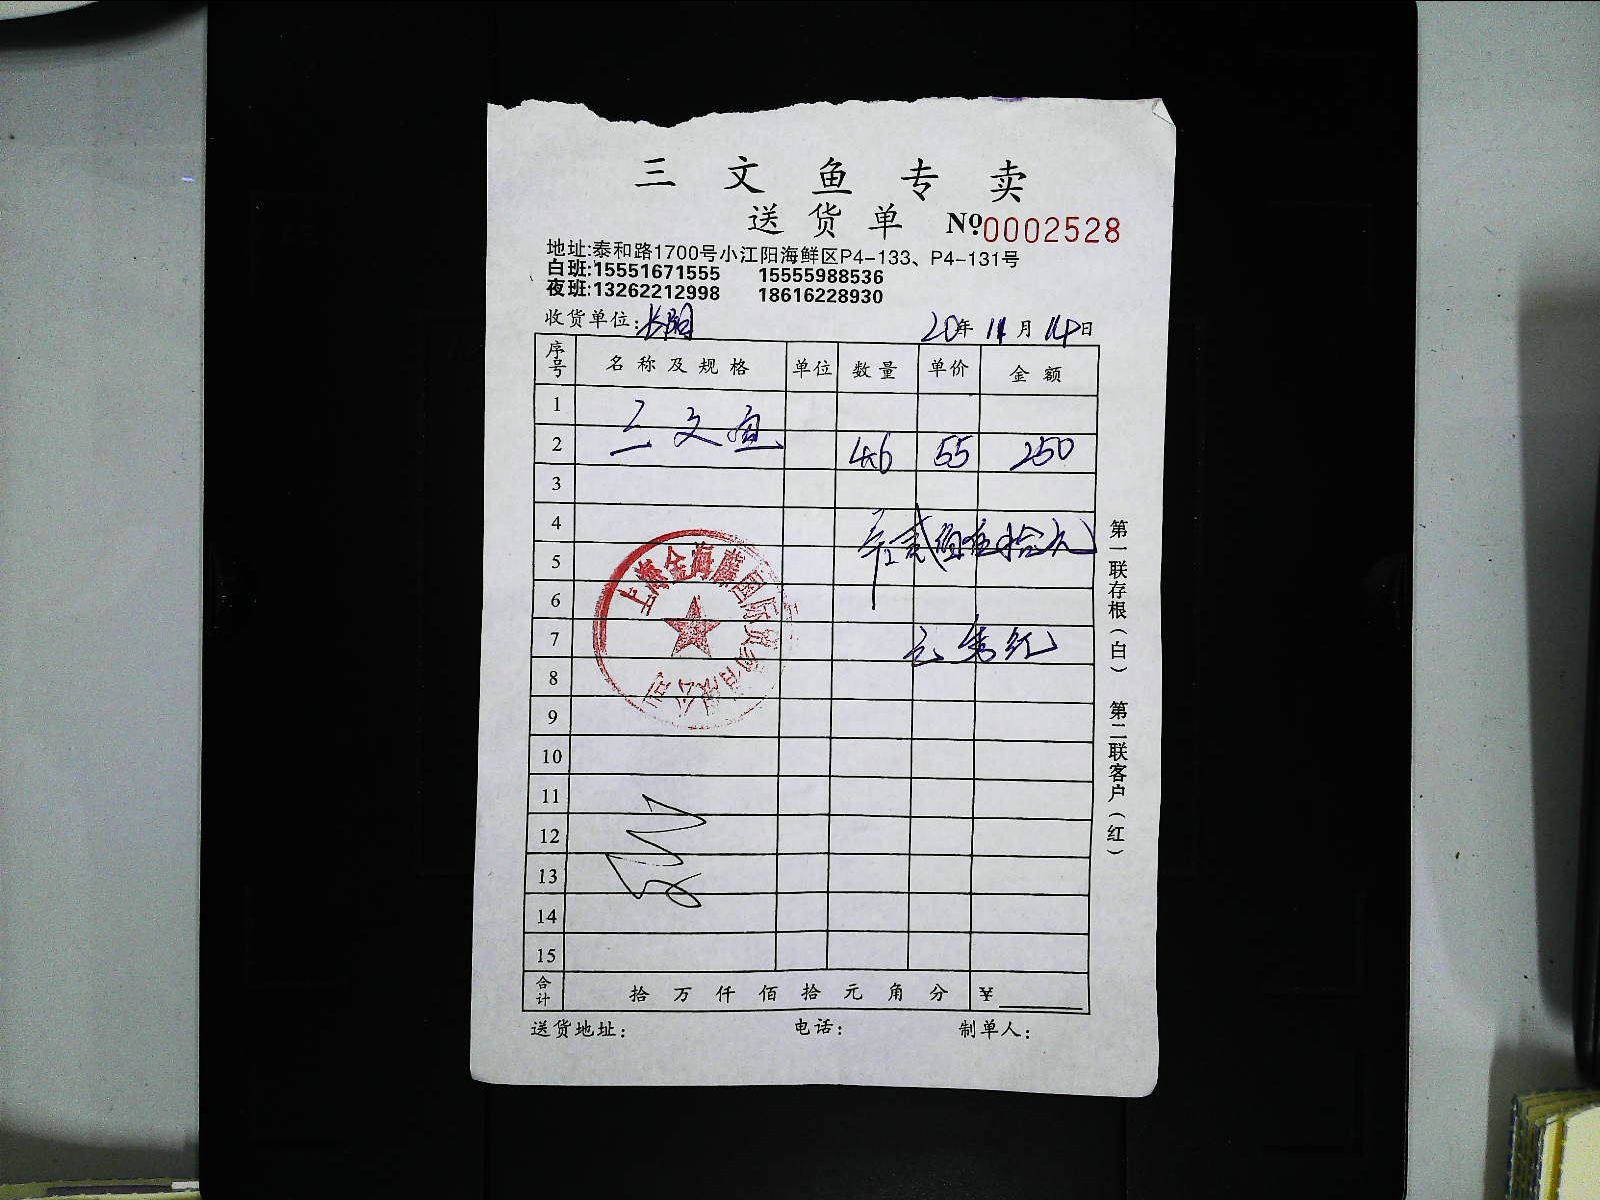 三文鱼专卖
送货单 №0002528
地址:泰和路1700号小江阳海鲜区P4-133、P4-131号
白班:15551671555 15555988536
夜班:13262212998 18616228930
收货单位: 20年11月14日
序号 名称及规格 单位 数量 单价 金额
1
2 三文鱼 4.6 55 250
3
4
5 贰佰伍拾元
6
7
8
9
10
11
12
13
14
15
上海金海麟国际贸易有限公司
合计 拾 万 仟 佰 拾 元 角 分 ¥
送货地址: 电话: 制单人:
第一联存根(白) 第二联客户(红)